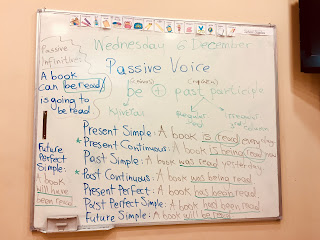 Wednesday 6 December
Passive Infinitives
A book
can be read/
is going to
be read
Passive Voice
(always)
be + past participle
Regular
Irregular
Present Simple: A book is read everyday
* Present Continuous: A book is being read now
Past Simple: A book was read yesterday
* Past Continuous: A book was being read
Present Perfect: A book has been read
Past Perfect Simple: A book had been read
Future Simple: A book will be read
Future
Perfect
Simple:
A book
will have
been read